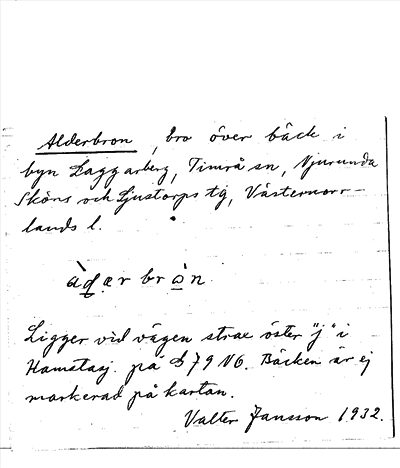 Alderbron, bro över bäck i
byn Laggarberg, Timrå sn, Njurunda
Sköns och Ljustorps tg, Västernorr-
lands l.
àd̲ær brò̲n.
Ligger vid vägen strax öster "j" i
Hamstasj. på D 79 NO. Bäcken är ej
markerad på kartan.
Valter Jansson 1932.